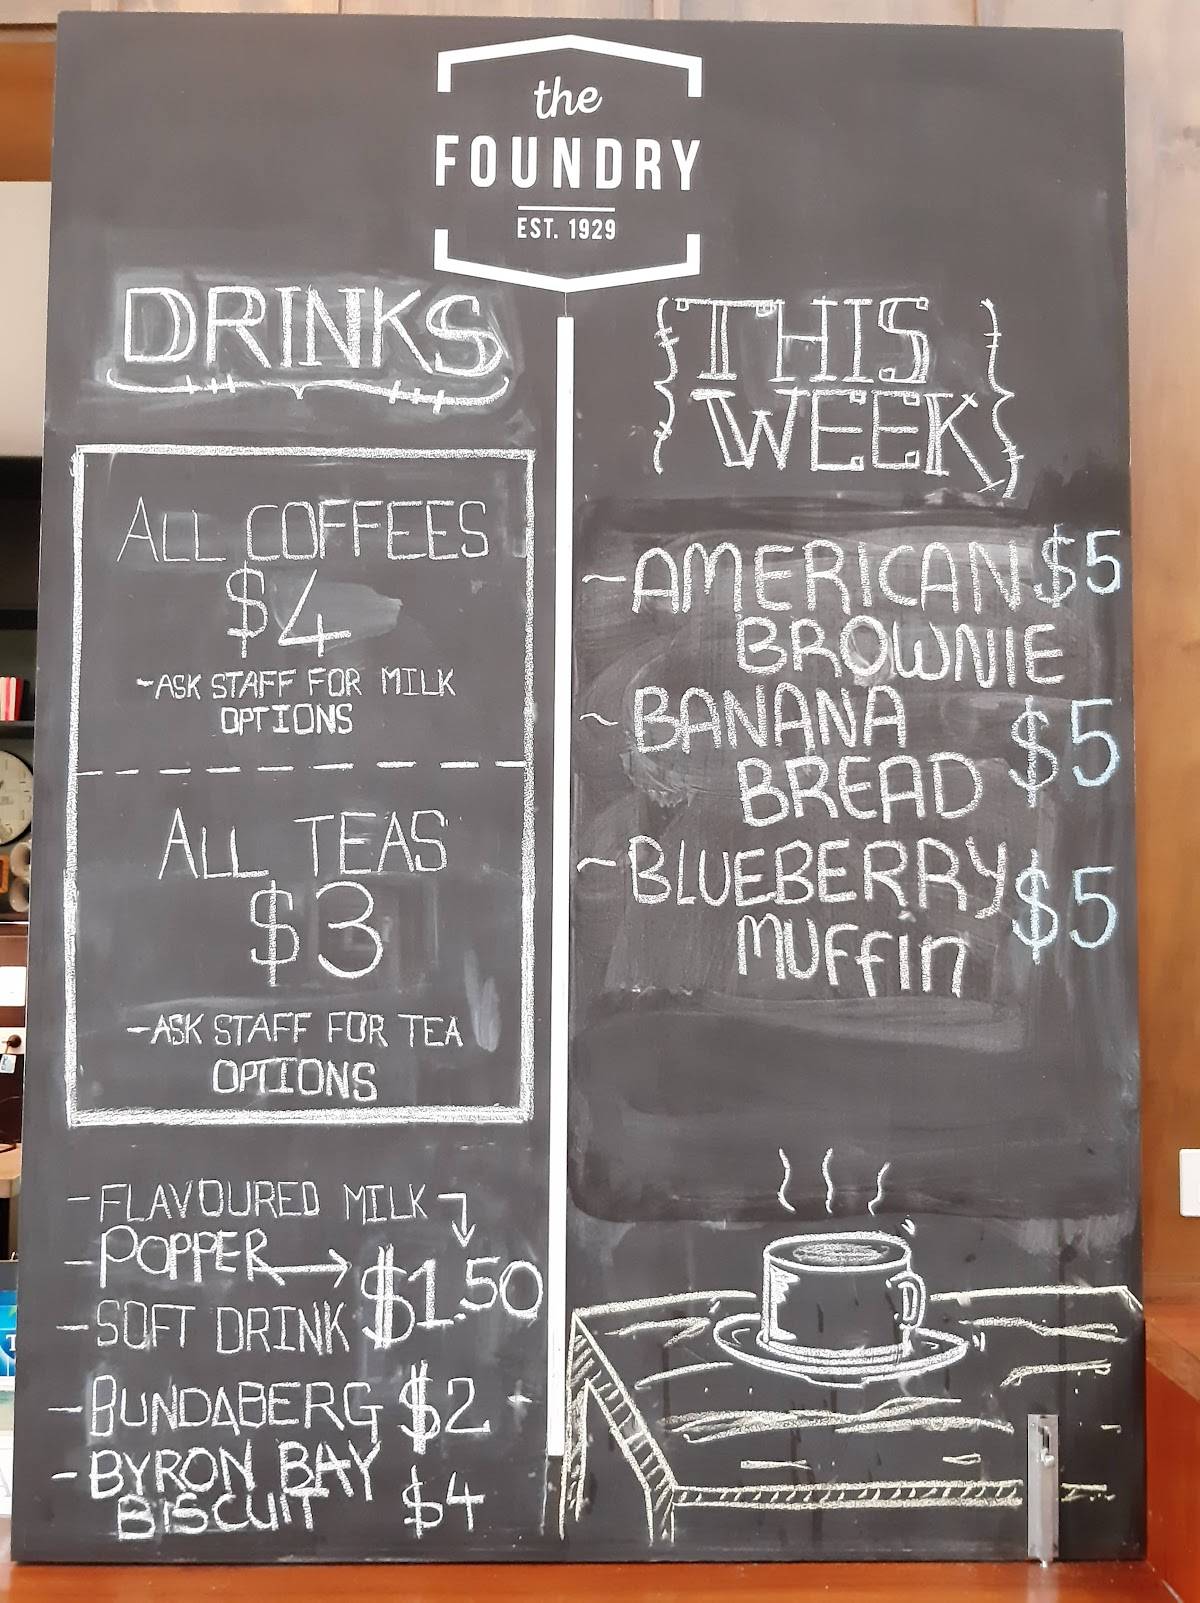 the
FOUNDRY
EST. 1929
DRINKS
ALL COFFEES
$4
-ASK STAFF FOR MILK
OPTIONS
ALL TEAS
$3
-ASK STAFF FOR TEA
OPTIONS
-FLAVOURED MILK
-POPPER
$1.50
-SOFT DRINK
-BUNDABERG $2
-BYRON BAY
BISCUIT $4
{THIS
WEEK}
~AMERICAN $5
BROWNIE
~BANANA
BREAD $5
~BLUEBERRY $5
MUFFIN